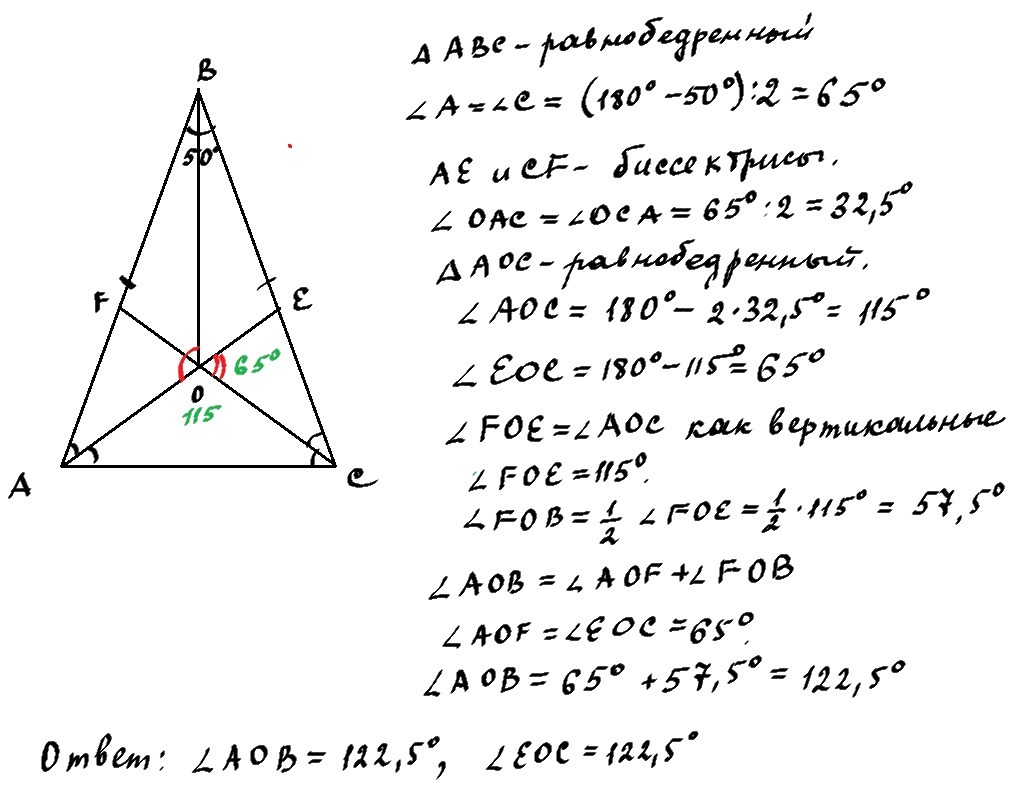 Δ ABC - равнобедренный
∠A = ∠C = (180° - 50°) : 2 = 65°
AE и CF - биссектрисы.
∠OAC = ∠OCA = 65° : 2 = 32,5°
Δ AOC - равнобедренный.
∠AOC = 180° - 2·32,5° = 115°
∠EOC = 180° - 115° = 65°
∠FOE = ∠AOC как вертикальные
∠FOE = 115°.
∠FOB = 1/2 ∠FOE = 1/2 · 115° = 57,5°
∠AOB = ∠AOF + ∠FOB
∠AOF = ∠EOC = 65°.
∠AOB = 65° + 57,5° = 122,5°
B
50°
F
E
65°
O
115
A
C
Ответ: ∠AOB = 122,5°, ∠EOC = 122,5°